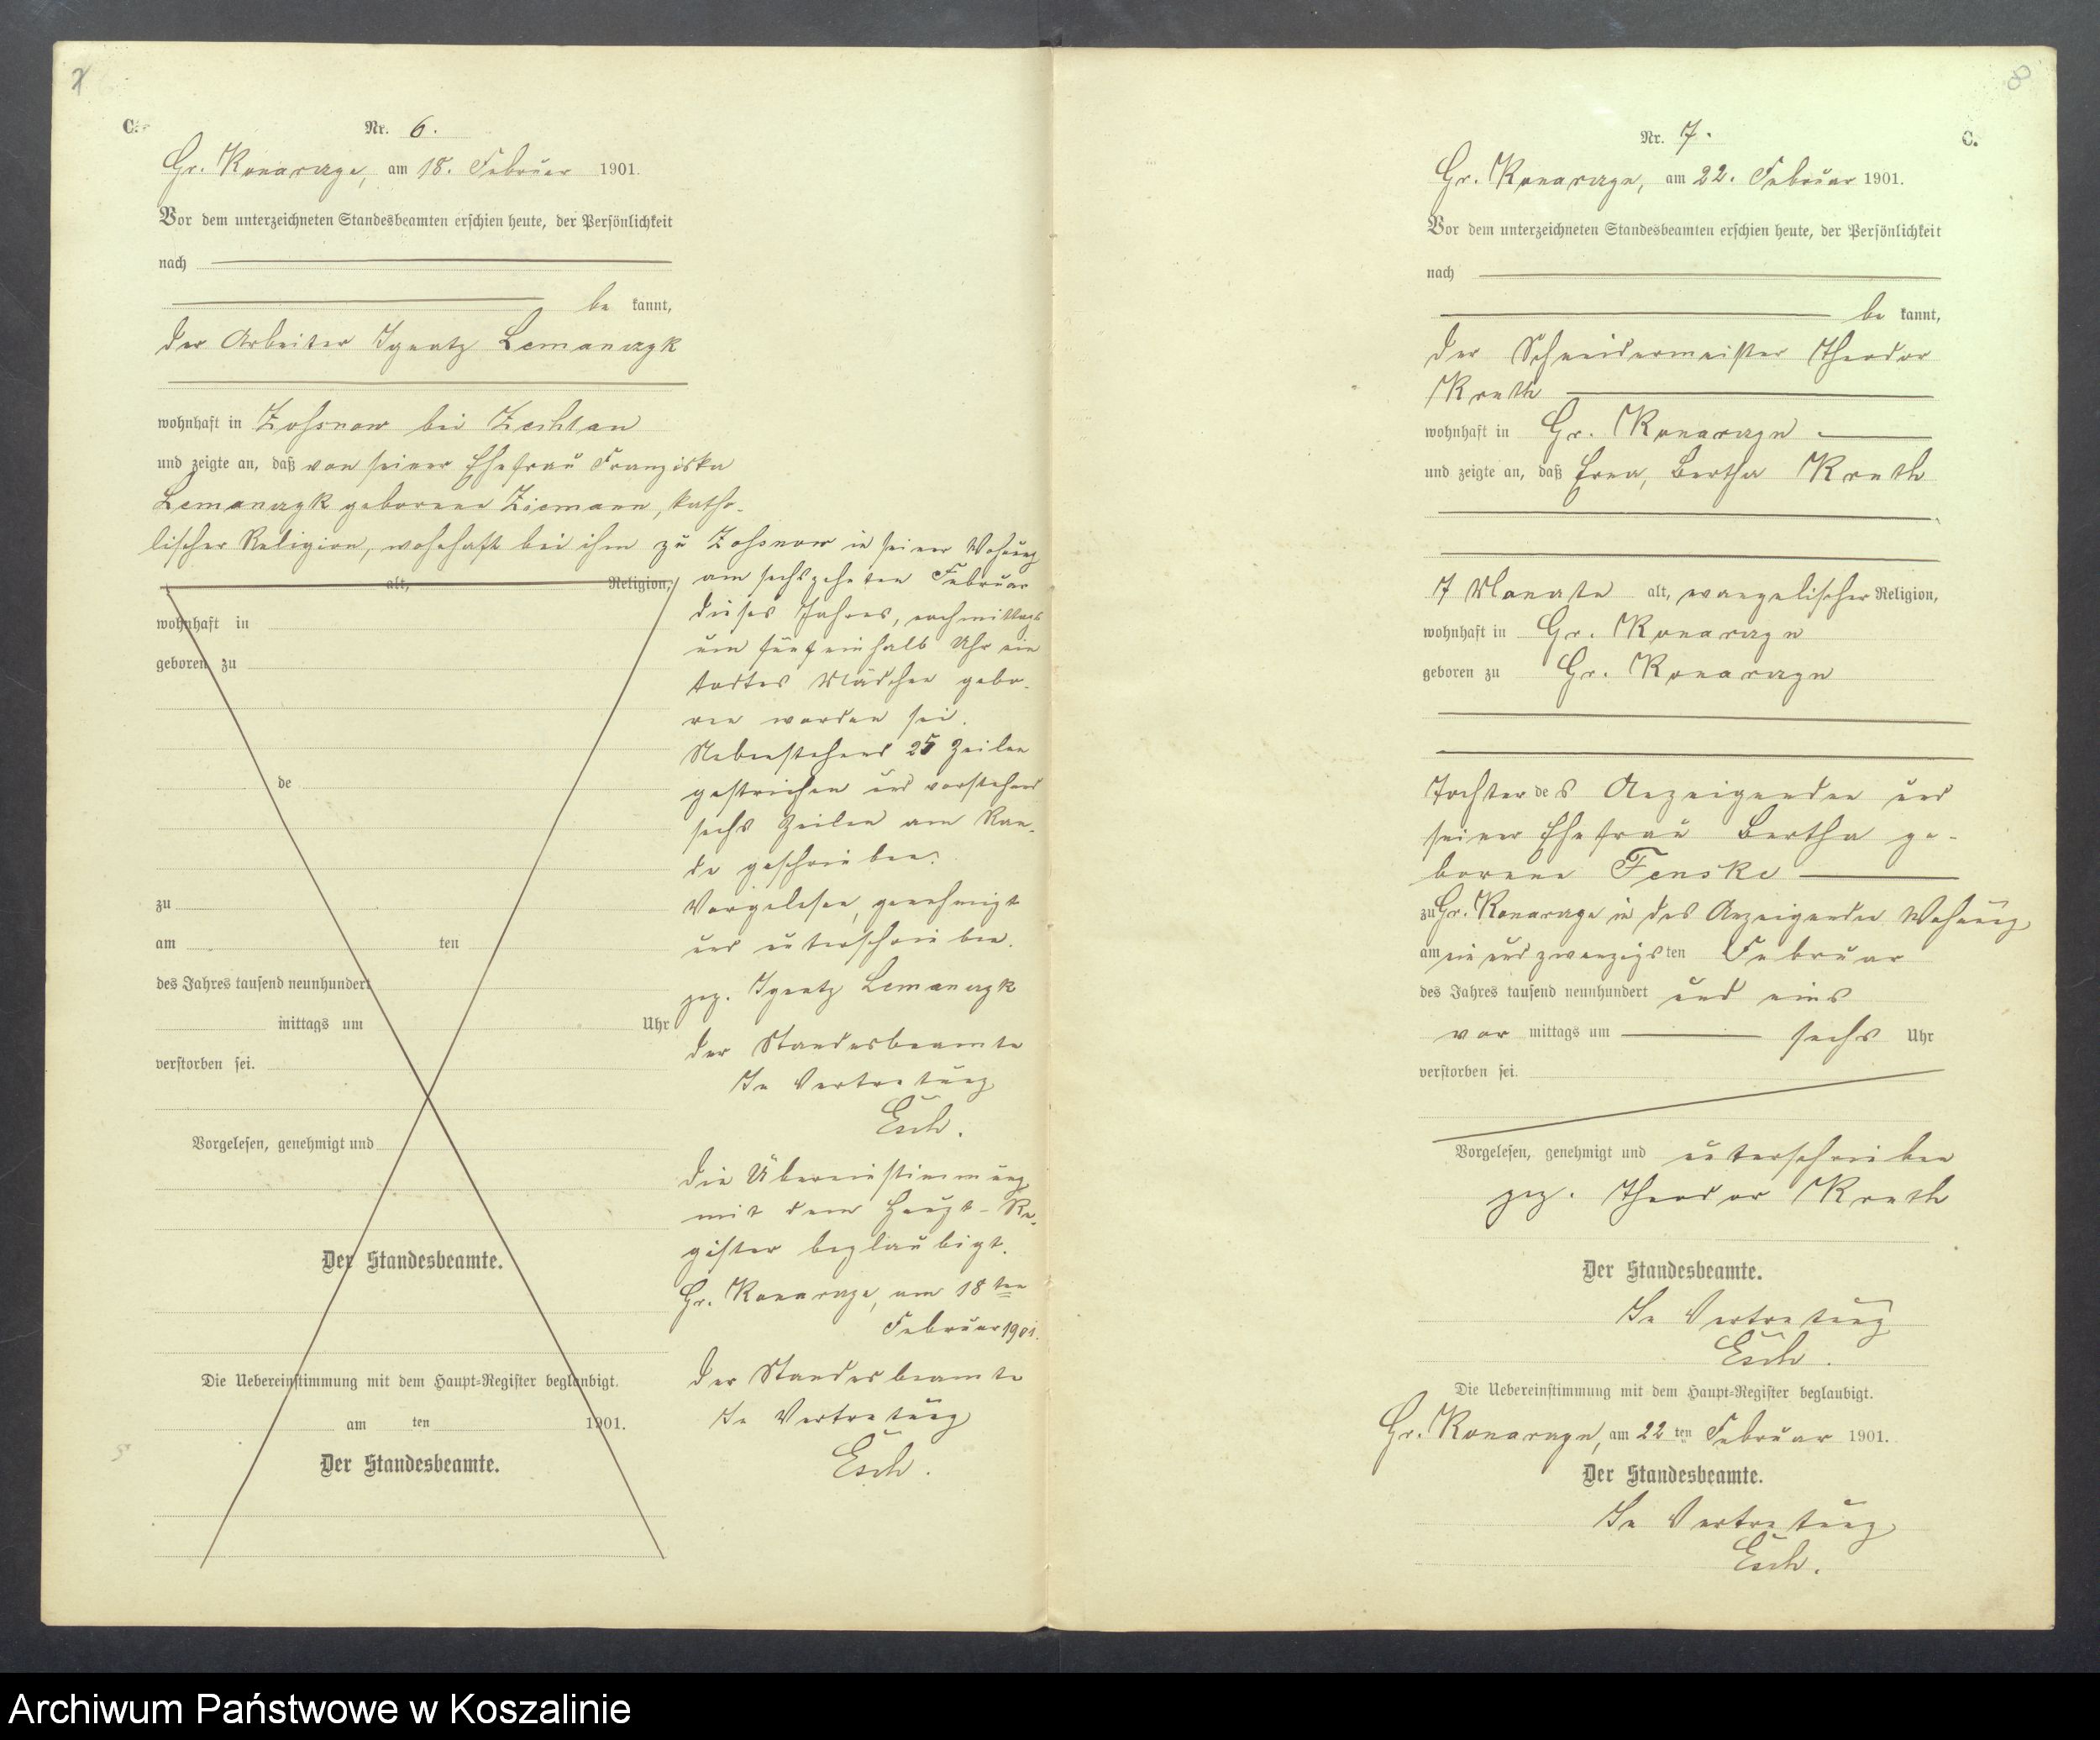 7
C.
Nr. 6.
Gr. Konarczyn, am 18. Februar 1901.
Vor dem unterzeichneten Standesbeamten erschien heute, der Persönlichkeit
nach
be kannt,
der Arbeiter Ignatz Lemanczyk
wohnhaft in Zossnow bei Zechlau
und zeigte an, daß von seiner Ehefrau Franziska
Lemanczyk geborene Ziemann, katho-
lischer Religion, wohnhaft bei ihm zu Zossnow in seiner Wohnung
am sechszehnten Februar
dieses Jahres, nachmittags
um fünfeinhalb Uhr ein
todtes Mädchen gebo-
ren worden sei.
Nebenstehend 25 Zeilen
gestrichen und vorstehend
sechs Zeilen am Ran-
de geschrieben.
Vorgelesen, genehmigt
und unterschrieben.
gez. Ignatz Lemanczyk
Der Standesbeamte
In Vertretung
Esch.
Die Übereinstimmung
mit dem Haupt-Re-
gister beglaubigt.
Gr. Konarczyn, am 18ten
Februar 1901.
Der Standesbeamte
In Vertretung
Esch.
alt, Religion,
wohnhaft in
geboren zu
de
zu
am ten
des Jahres tausend neunhundert
mittags um Uhr
verstorben sei.
Vorgelesen, genehmigt und
Der Standesbeamte.
Die Uebereinstimmung mit dem Haupt-Register beglaubigt.
am ten 1901.
Der Standesbeamte.
8
Nr. 7.
C.
Gr. Konarczyn, am 22. Februar 1901.
Vor dem unterzeichneten Standesbeamten erschien heute, der Persönlichkeit
nach
be kannt,
der Schneidermeister Theodor
Kruth
wohnhaft in Gr. Konarczyn
und zeigte an, daß Erna, Bertha Kruth
7 Monate alt, evangelischer Religion,
wohnhaft in Gr. Konarczyn
geboren zu Gr. Konarczyn
Tochter des Anzeigenden und
seiner Ehefrau Bertha ge-
borene Fenske
zu Gr. Konarczyn in des Anzeigenden Wohnung
am einundzwanzigsten Februar
des Jahres tausend neunhundert und eins
vor mittags um sechs Uhr
verstorben sei.
Vorgelesen, genehmigt und unterschrieben
gez. Theodor Kruth
Der Standesbeamte.
In Vertretung
Esch.
Die Uebereinstimmung mit dem Haupt-Register beglaubigt.
Gr. Konarczyn, am 22ten Februar 1901.
Der Standesbeamte.
In Vertretung
Esch.
Archiwum Państwowe w Koszalinie